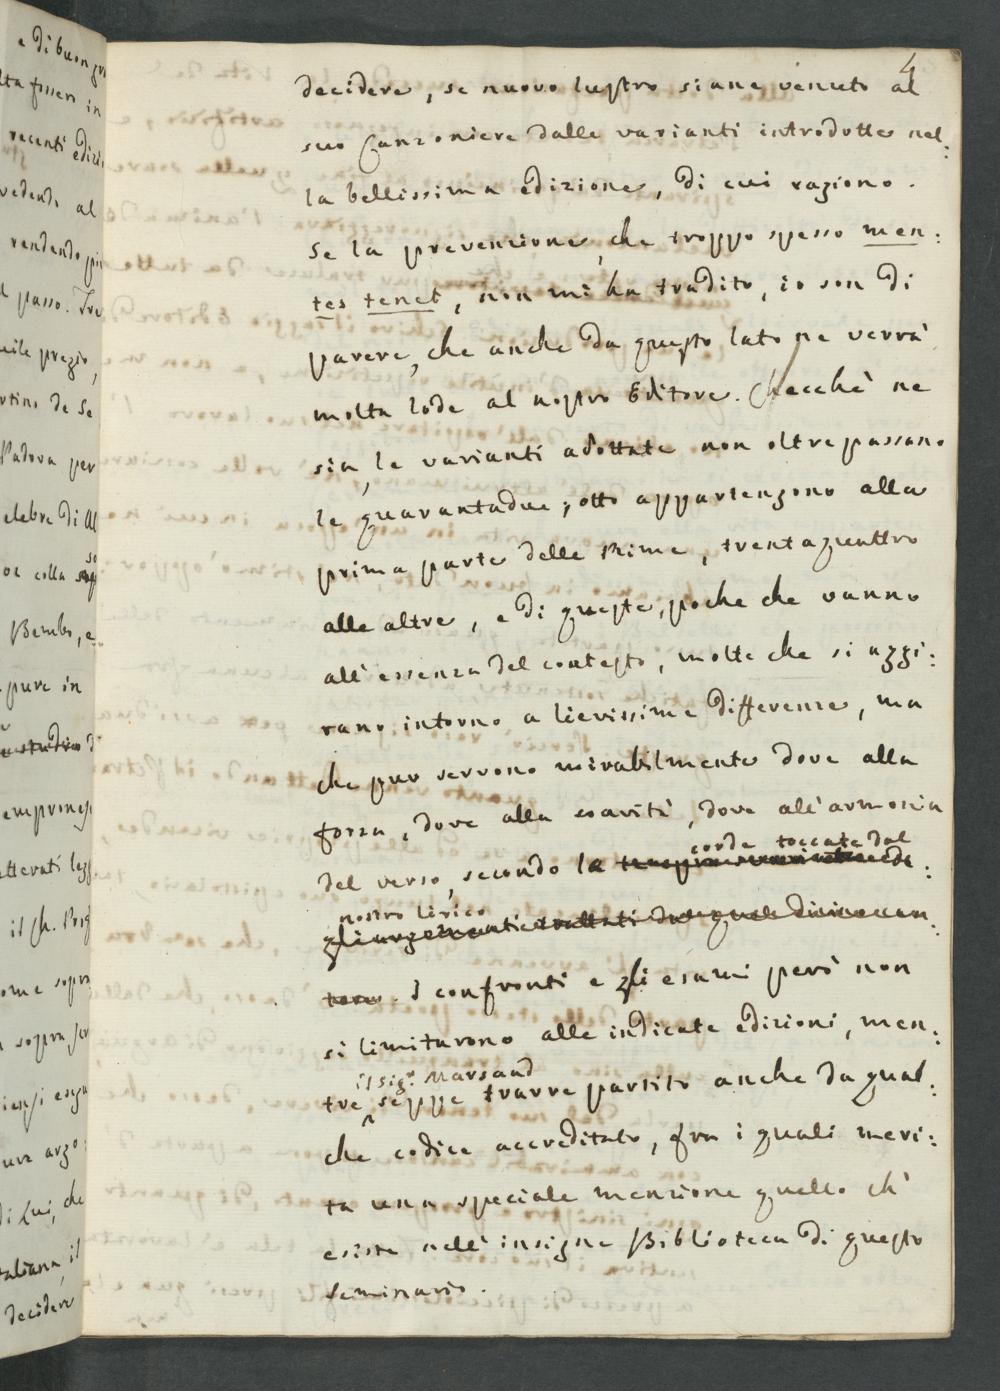 4
decidere, se nuovo lustro siane venuto al
suo Canzoniere dalle varianti introdotte nel:
la bellissima edizione, di cui ragiono.
Se la prevenzione, che troppo spesso men:
tes tenet, non mi ha tradito, io son di
parere, che anche da questo lato ne verrà
molta lode al nostro Editore. Checchè ne
sia, le varianti adottate non oltrepassano
le quarantadue; otto appartengono alla
prima parte delle Rime, trentaquattro
alle altre, e di queste, poche che vanno
all'essenza del contesto, molte che si aggi:
rano intorno a lievissime differenze, ma
che pur servono mirabilmente dove alla
forza, dove alla soavità, dove all'armonia
del verso, secondo la
corde toccate dal
nostro lirico
gli argomenti trattati
. I confronti e gli esami però non
si limitarono alle indicate edizioni, men:
il sigr. Marsand
tre seppe trarre partito anche da qual:
che codice accreditato, fra i quali meri:
ta una speciale menzione quello ch'
esiste nell'insigne Biblioteca di questo
Seminario.
e di buon
recenti
vedendo al
rendendo più
passo.
pregio,
de Se
Padova per
celebre di Al
colla
Bembo, e
pure in
il Ch.
sopra
Lui, che
italiana, il
decidere